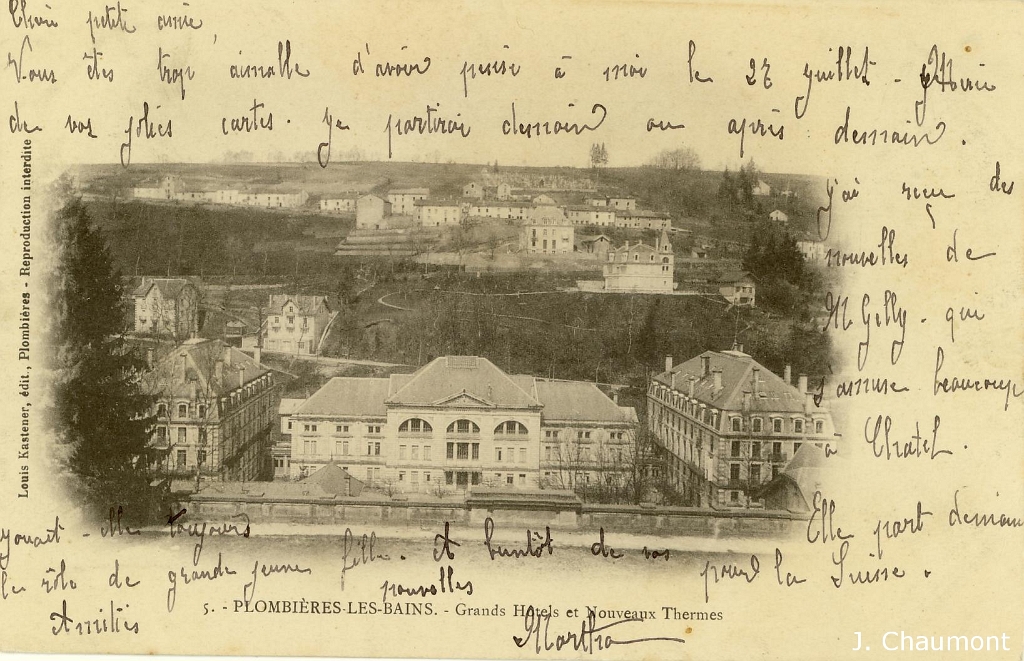 Chère petite amie,
Vous êtes trop aimable d'avoir pensé à moi le 27 juillet - Merci
de vos jolies cartes. Je partirai demain ou après demain.
j'ai reçu des
nouvelles de
M Gelly. qui
s'amuse beaucoup
à Chatel.
Elle part demain
pour la Suisse.
jouait - elle toujours
le rôle de grande jeune fille. A bientôt de vos
nouvelles
Amitiés
Martha
5. - PLOMBIÈRES-LES-BAINS. - Grands Hôtels et Nouveaux Thermes
Louis Kastener, édit., Plombières - Reproduction interdite
J. Chaumont